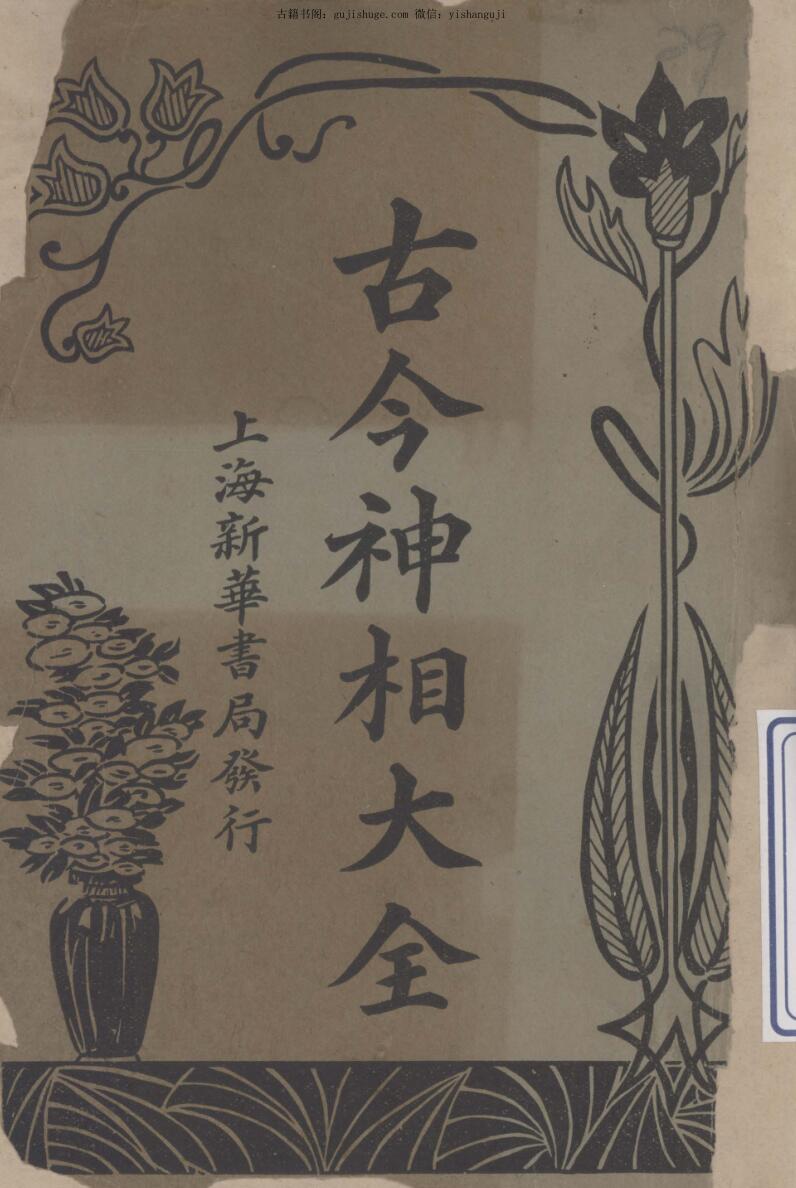 古籍书阁：gujishuge.com 微信：yishanguji
29
古今神相大全
上海新華書局發行